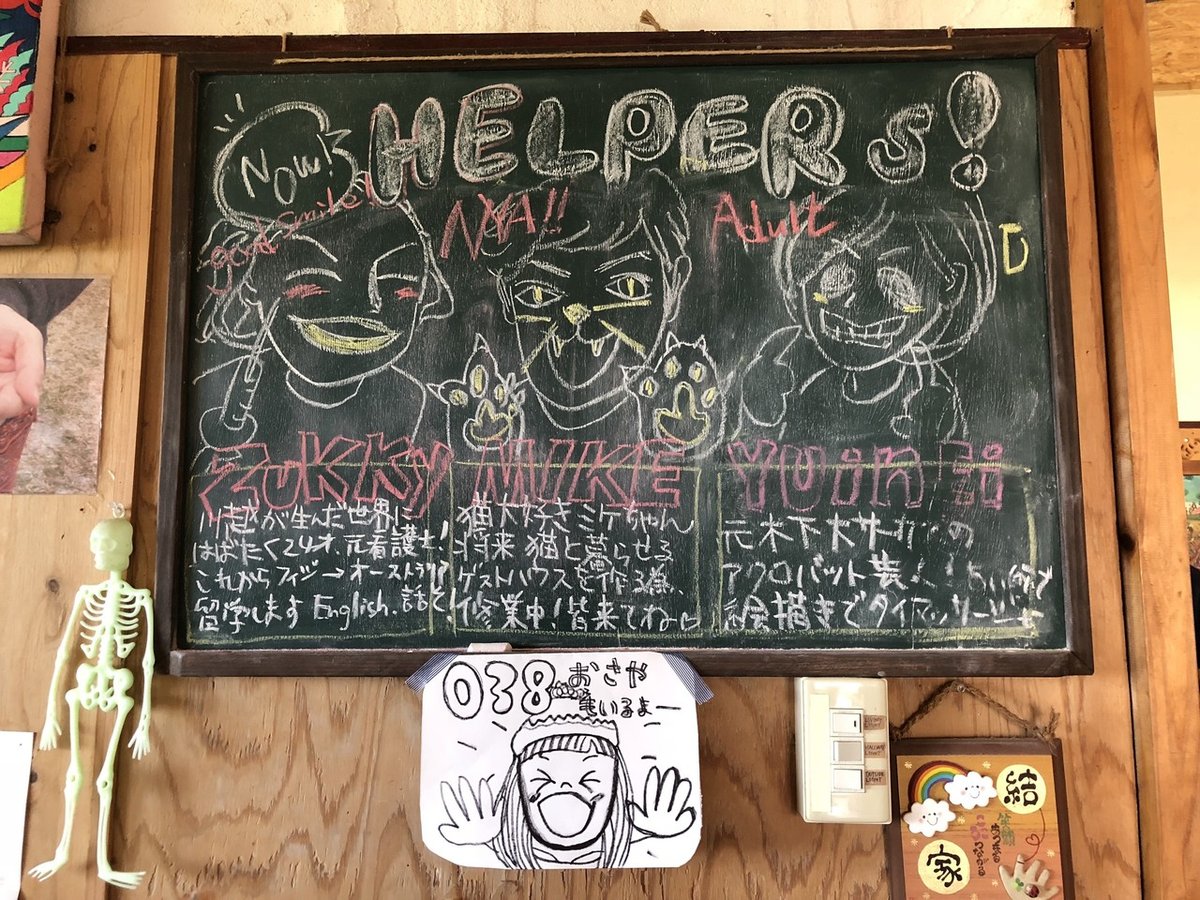 Now!
HELPERS!
good smile!
NYA!!
Adult
D
ZUKKY
MIKE
Yuin
川越が生んだ世界に
はばたく24才、元看護士!
これからフィジー→オーストラリア
留学します English.話そ!
猫大好きミケちゃん
将来猫と暮らせる
ゲストハウスを作る為、
修業中!皆来てね
元木下大サーカスの
アクロバット芸人!
絵描きでタイマッサージ
038
おさや
亀いるよー
結
家
笑顔